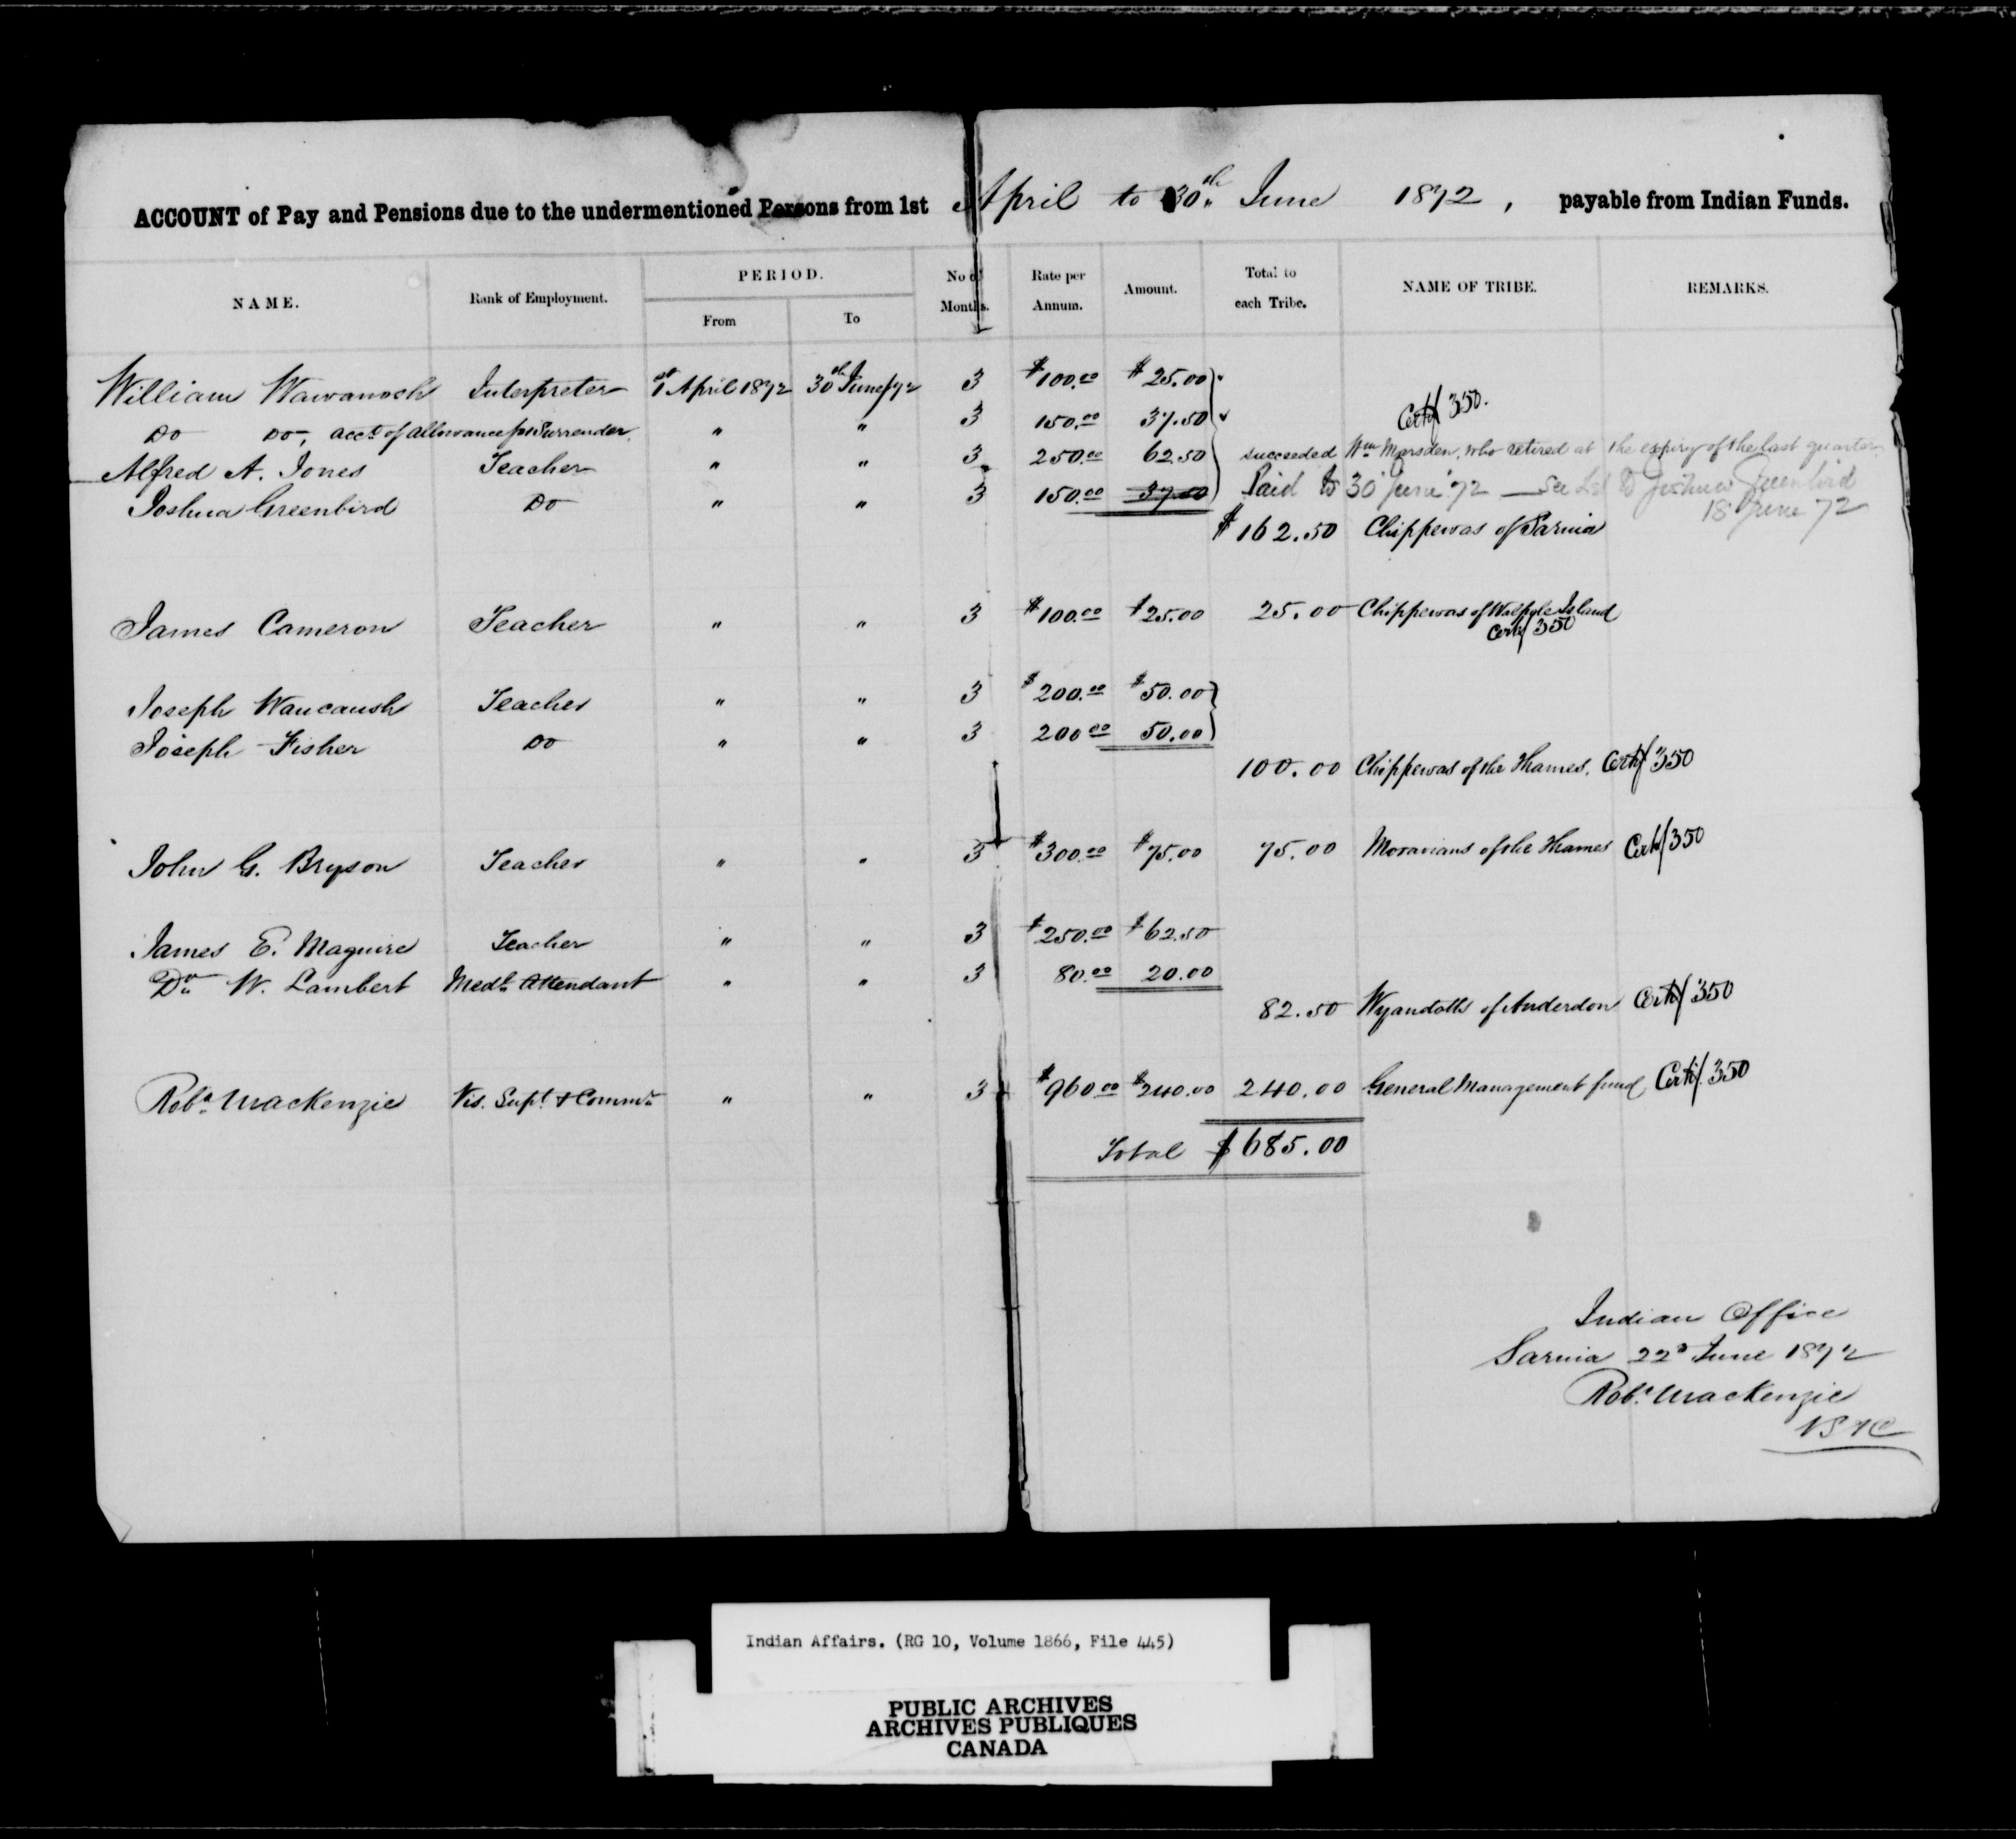 ACCOUNT of Pay and Pensions due to the undermentioned Persons from 1st April to 30th June 1872, payable from Indian Funds.
NAME. Rank of Employment. PERIOD. From To No of Months. Rate per Annum. Amount. Total to each Tribe. NAME OF TRIBE. REMARKS.
William Wawanosh Interpreter 1st April 1872 30th June/72 3 $100.00 $25.00
Certif 350.
Do Do, acct. of allowance for Surrender " " 3 150.00 37.50
Alfred A. Jones Teacher " " 3 250.00 62.50 succeeded Wm Marsden, who retired at the expiry of the last quarter
Joshua Greenbird Do " " 3 150.00 37.50 Paid to 30 June '72 — See Let to Joshua Greenbird
18 June 72
$162.50 Chippewas of Sarnia
James Cameron Teacher " " 3 $100.00 $25.00 25.00 Chippewas of Walpole Island
Certif 350
Joseph Waucaush Teacher " " 3 $200.00 $50.00
Joseph Fisher Do " " 3 200.00 50.00
100.00 Chippewas of the Thames. Certif 350
John G. Bryson Teacher " " 3 $300.00 $75.00 75.00 Moravians of the Thames Certif 350
James E. Maguire Teacher " " 3 $250.00 $62.50
Dr. W. Lambert Medl. Attendant " " 3 80.00 20.00
82.50 Wyandotts of Anderdon Certif 350
Robt. Mackenzie Vis. Supt. & Commr. " " 3 $960.00 $240.00 240.00 General Management fund Certif. 350
Total $685.00
Indian Office
Sarnia 22d June 1872
Robt. Mackenzie
VS&C
Indian Affairs. (RG 10, Volume 1866, File 445)
PUBLIC ARCHIVES
ARCHIVES PUBLIQUES
CANADA